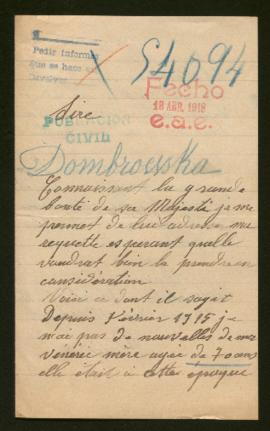 Pedir informes
que se hace en
Devolver
S 4094
Fecho
18 ABR. 1918
e.a.e.
Sire
POBLACION
CIVIL
Dombrowska
Connaissant la grande
bonté de sa Majesté je me
permet de lui adresser ma
requette esperant quelle
voudrat bien la prendre en
considération
Voici ce dont il sagit
Depuis Février 1915 je
n'ai pas de nouvelles de ma
vénérée mère agée de 70 ans
elle était à cette époque